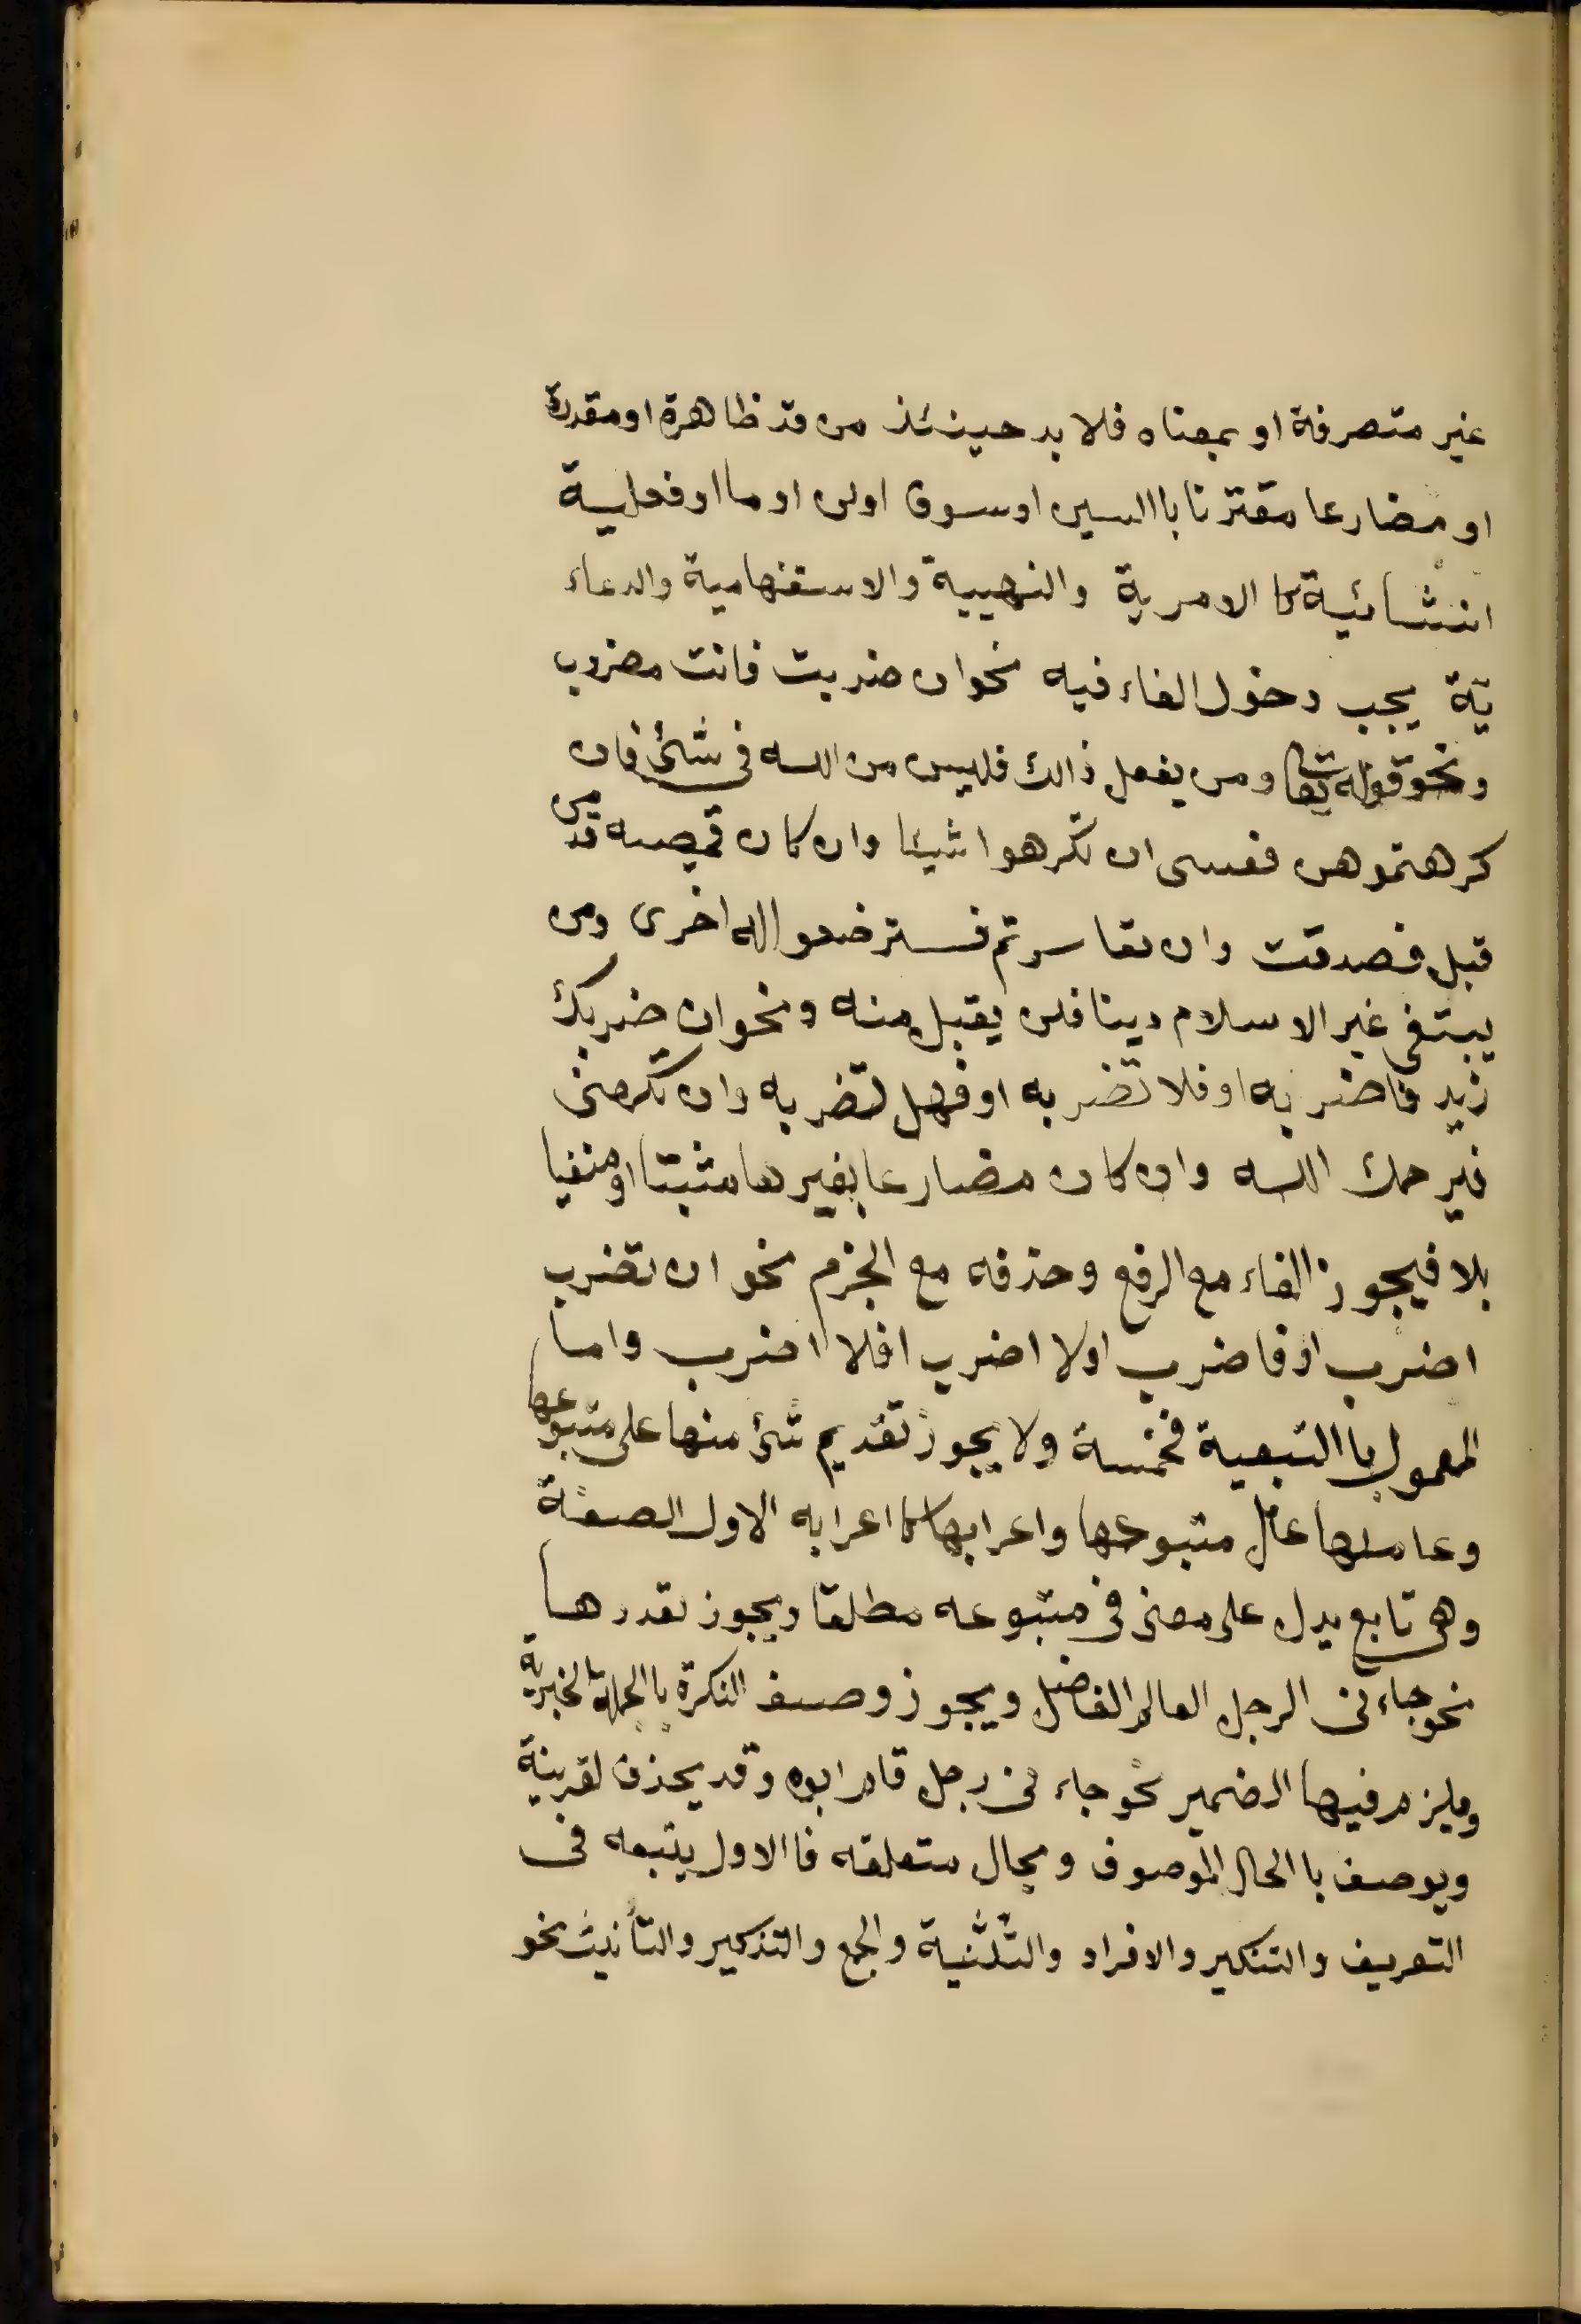 غير متصرفة او بمعناه فلا بد حينئذ من قد ظاهرة او مقدرة
او مضارعا مقترنا باالسين اوسوف اولن او ما او فعلية
انشائية كا الامرية والنهيية والاستفهامية والدعاء
ية يجب دخول الفاء فيه نحو ان ضربت فانت مضروب
ونحو قوله تعا ومن يفعل ذالك فليس من الله فى شئ فان
كرهتموهن فعسى ان تكرهوا شيئا وان كان قميصه قد من
قبل فصدقت وان تعاسرتم فسترضعو اله اخرى ومن
يبتغى غير الاسلام دينا فلن يقبل منه ونحو ان ضربك
زيد فاضربه او فلا تضربه او فهل تضربه وان تكرمنى
فيرحمك الله وان كان مضارعا بغيرها مثبتا او منفيا
بلا فيجوز الفاء مع الرفع وحذفه مع الجزم نحو ان تضرب
اضرب او فاضرب اولا اضرب افلا اضرب واما
المعمول باالتبعية فخمسة ولا يجوز تقديم شئ منها على متبوعها
وعاملها عامل متبوعها واعرابها كا اعرابه الاول الصفة
وهى تابع يدل على معنى فى متبوعه مطلقا ويجوز تعددها
نحو جاءنى الرجل العالم الفاضل ويجوز وصف النكرة باالجملة الخبرية
ويلزم فيها الضمير نحو جاءنى رجل قام ابوه وقد يحذف لقرينة
ويوصف باالحال الموصوف وبحال متعلقه فاالاول يتبعه فى
التعريف والتنكير والافراد والتثنية والجمع والتذكير والتأنيث نحو